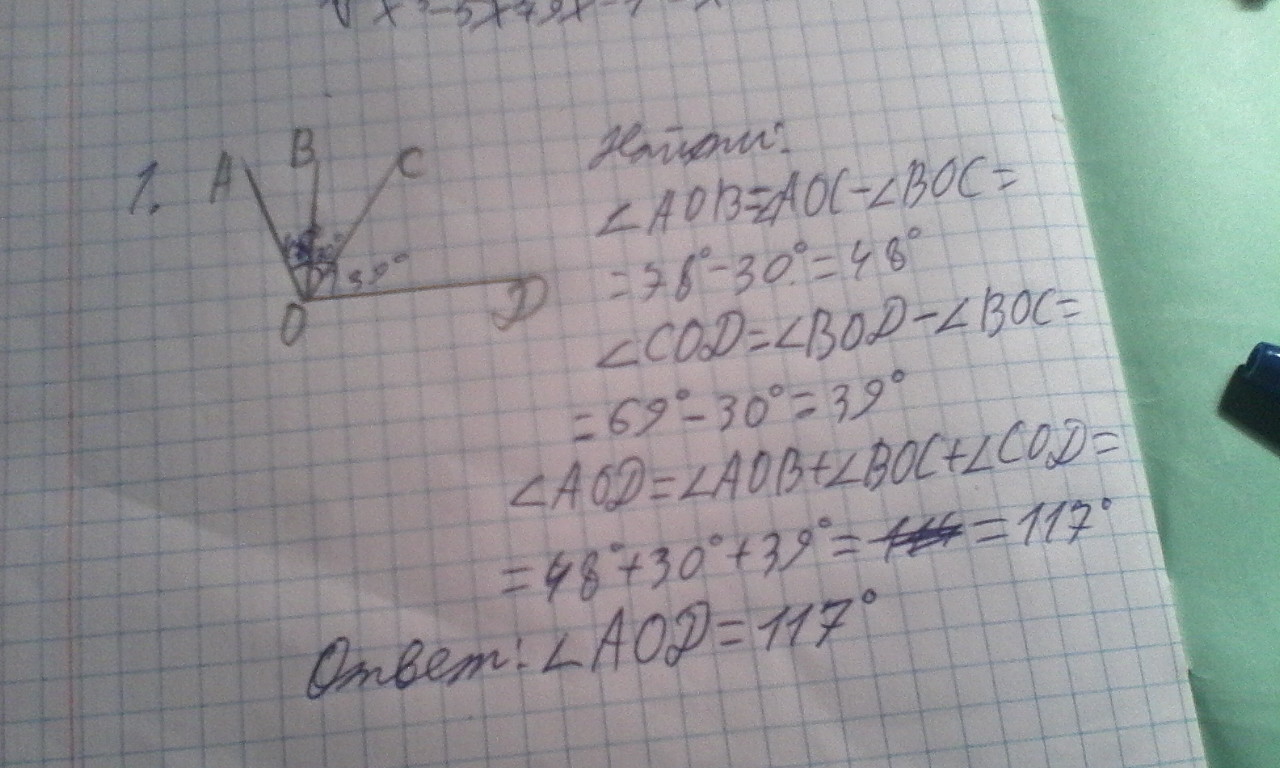 1.
A B C
39°
O D
∠AOB=∠AOC-∠BOC=
=78°-30°=48°
∠COD=∠BOD-∠BOC=
=69°-30°=39°
∠AOD=∠AOB+∠BOC+∠COD=
=48°+30°+39°= =117°
Ответ: ∠AOD=117°